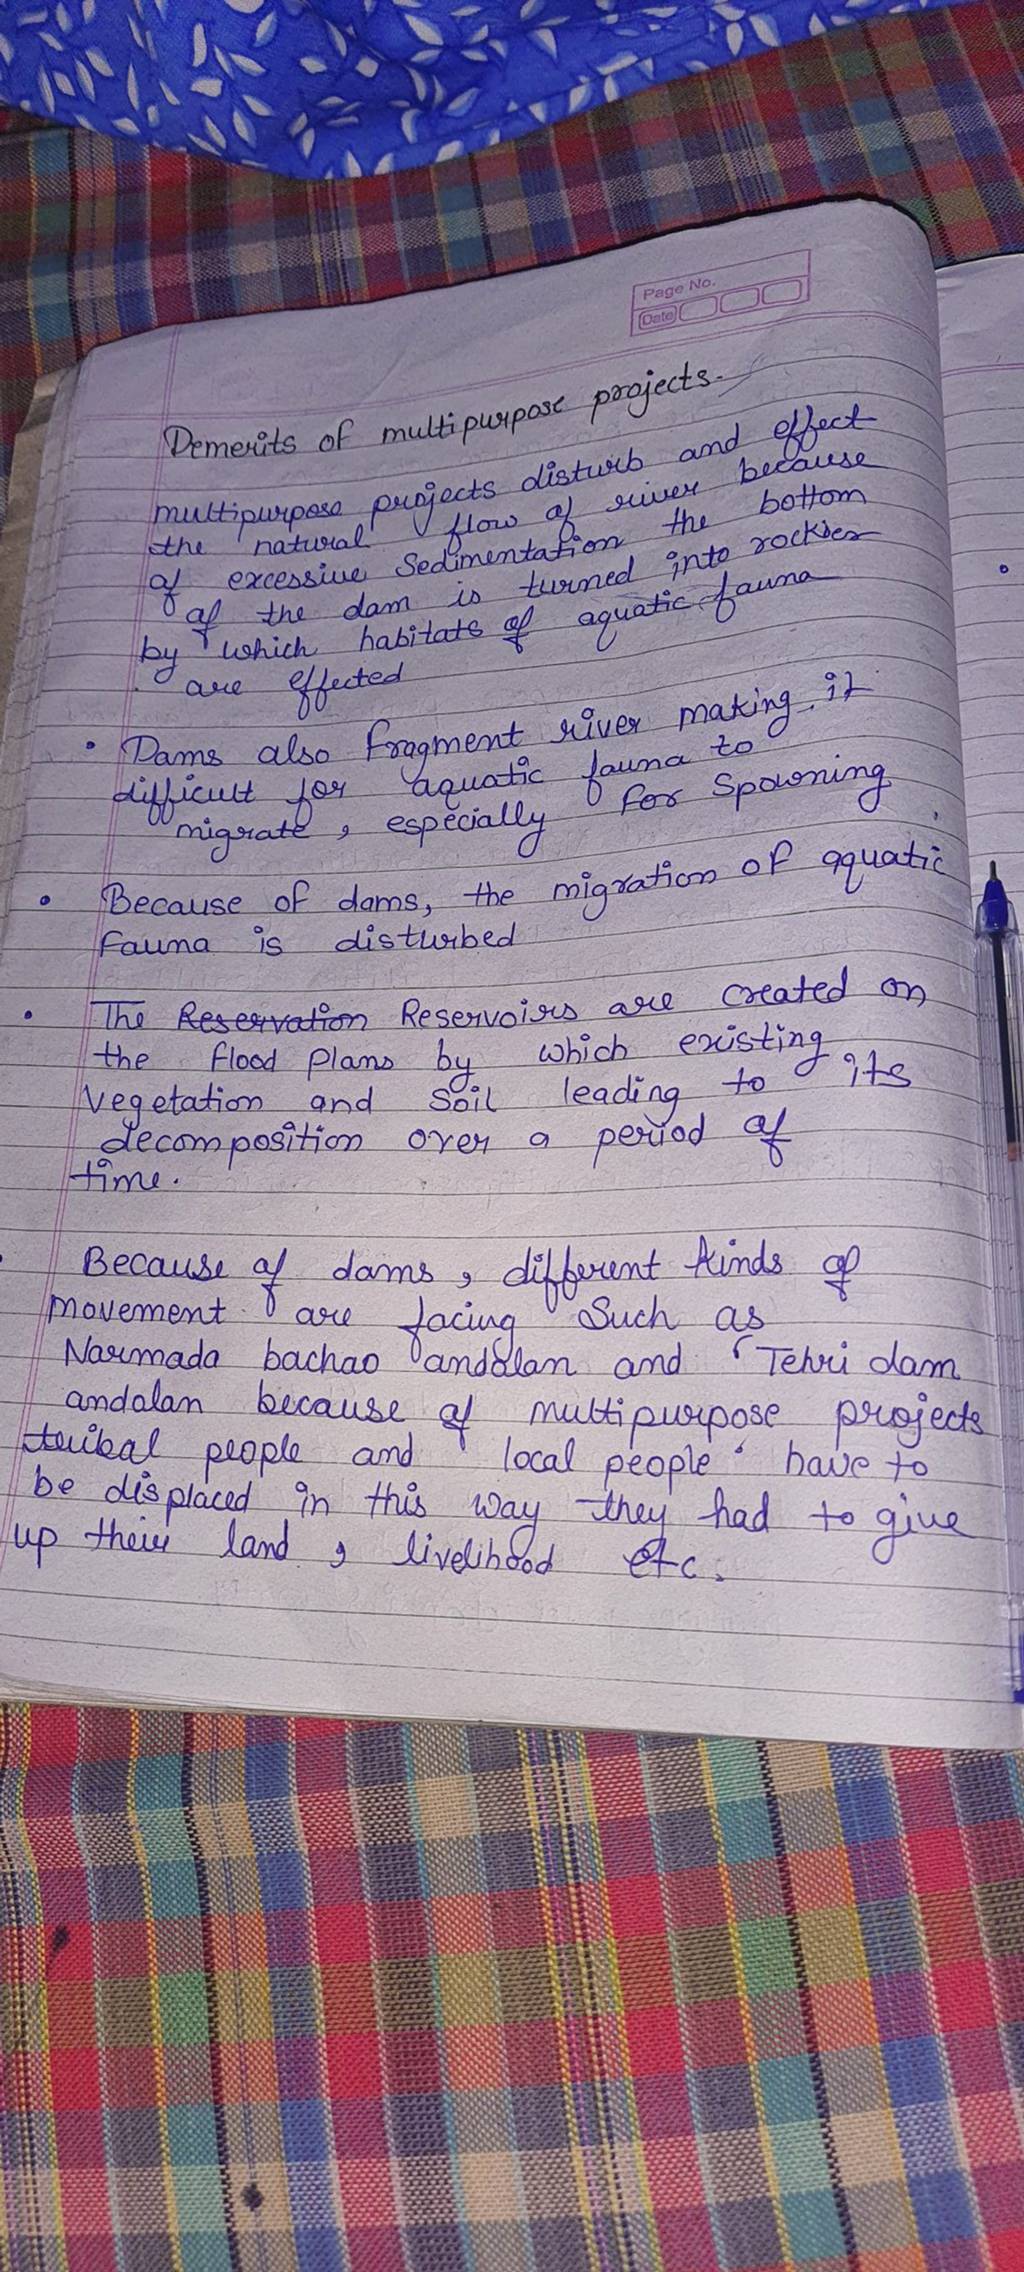 Page No.
Date
Demerits of multipurpose projects.
multipurpose projects disturb and effect
the natural flow of river because
of excessive Sedimentation the bottom
of the dam is turned into rockies
by which habitats of aquatic fauna
are effected
• Dams also fragment river making it
difficult for aquatic fauna to
migrate, especially for Spawning
• Because of dams, the migration of aquatic
Fauna is disturbed
• The Reservation Reservoirs are created on
the flood plans by which existing
vegetation and Soil leading to its
decomposition over a period of
time.
• Because of dams, different kinds of
movement are facing Such as
Narmada bachao andolan and Tehri dam
andalan because of multipurpose projects
tribal people and local people have to
be displaced in this way they had to give
up their land, livelihood etc.